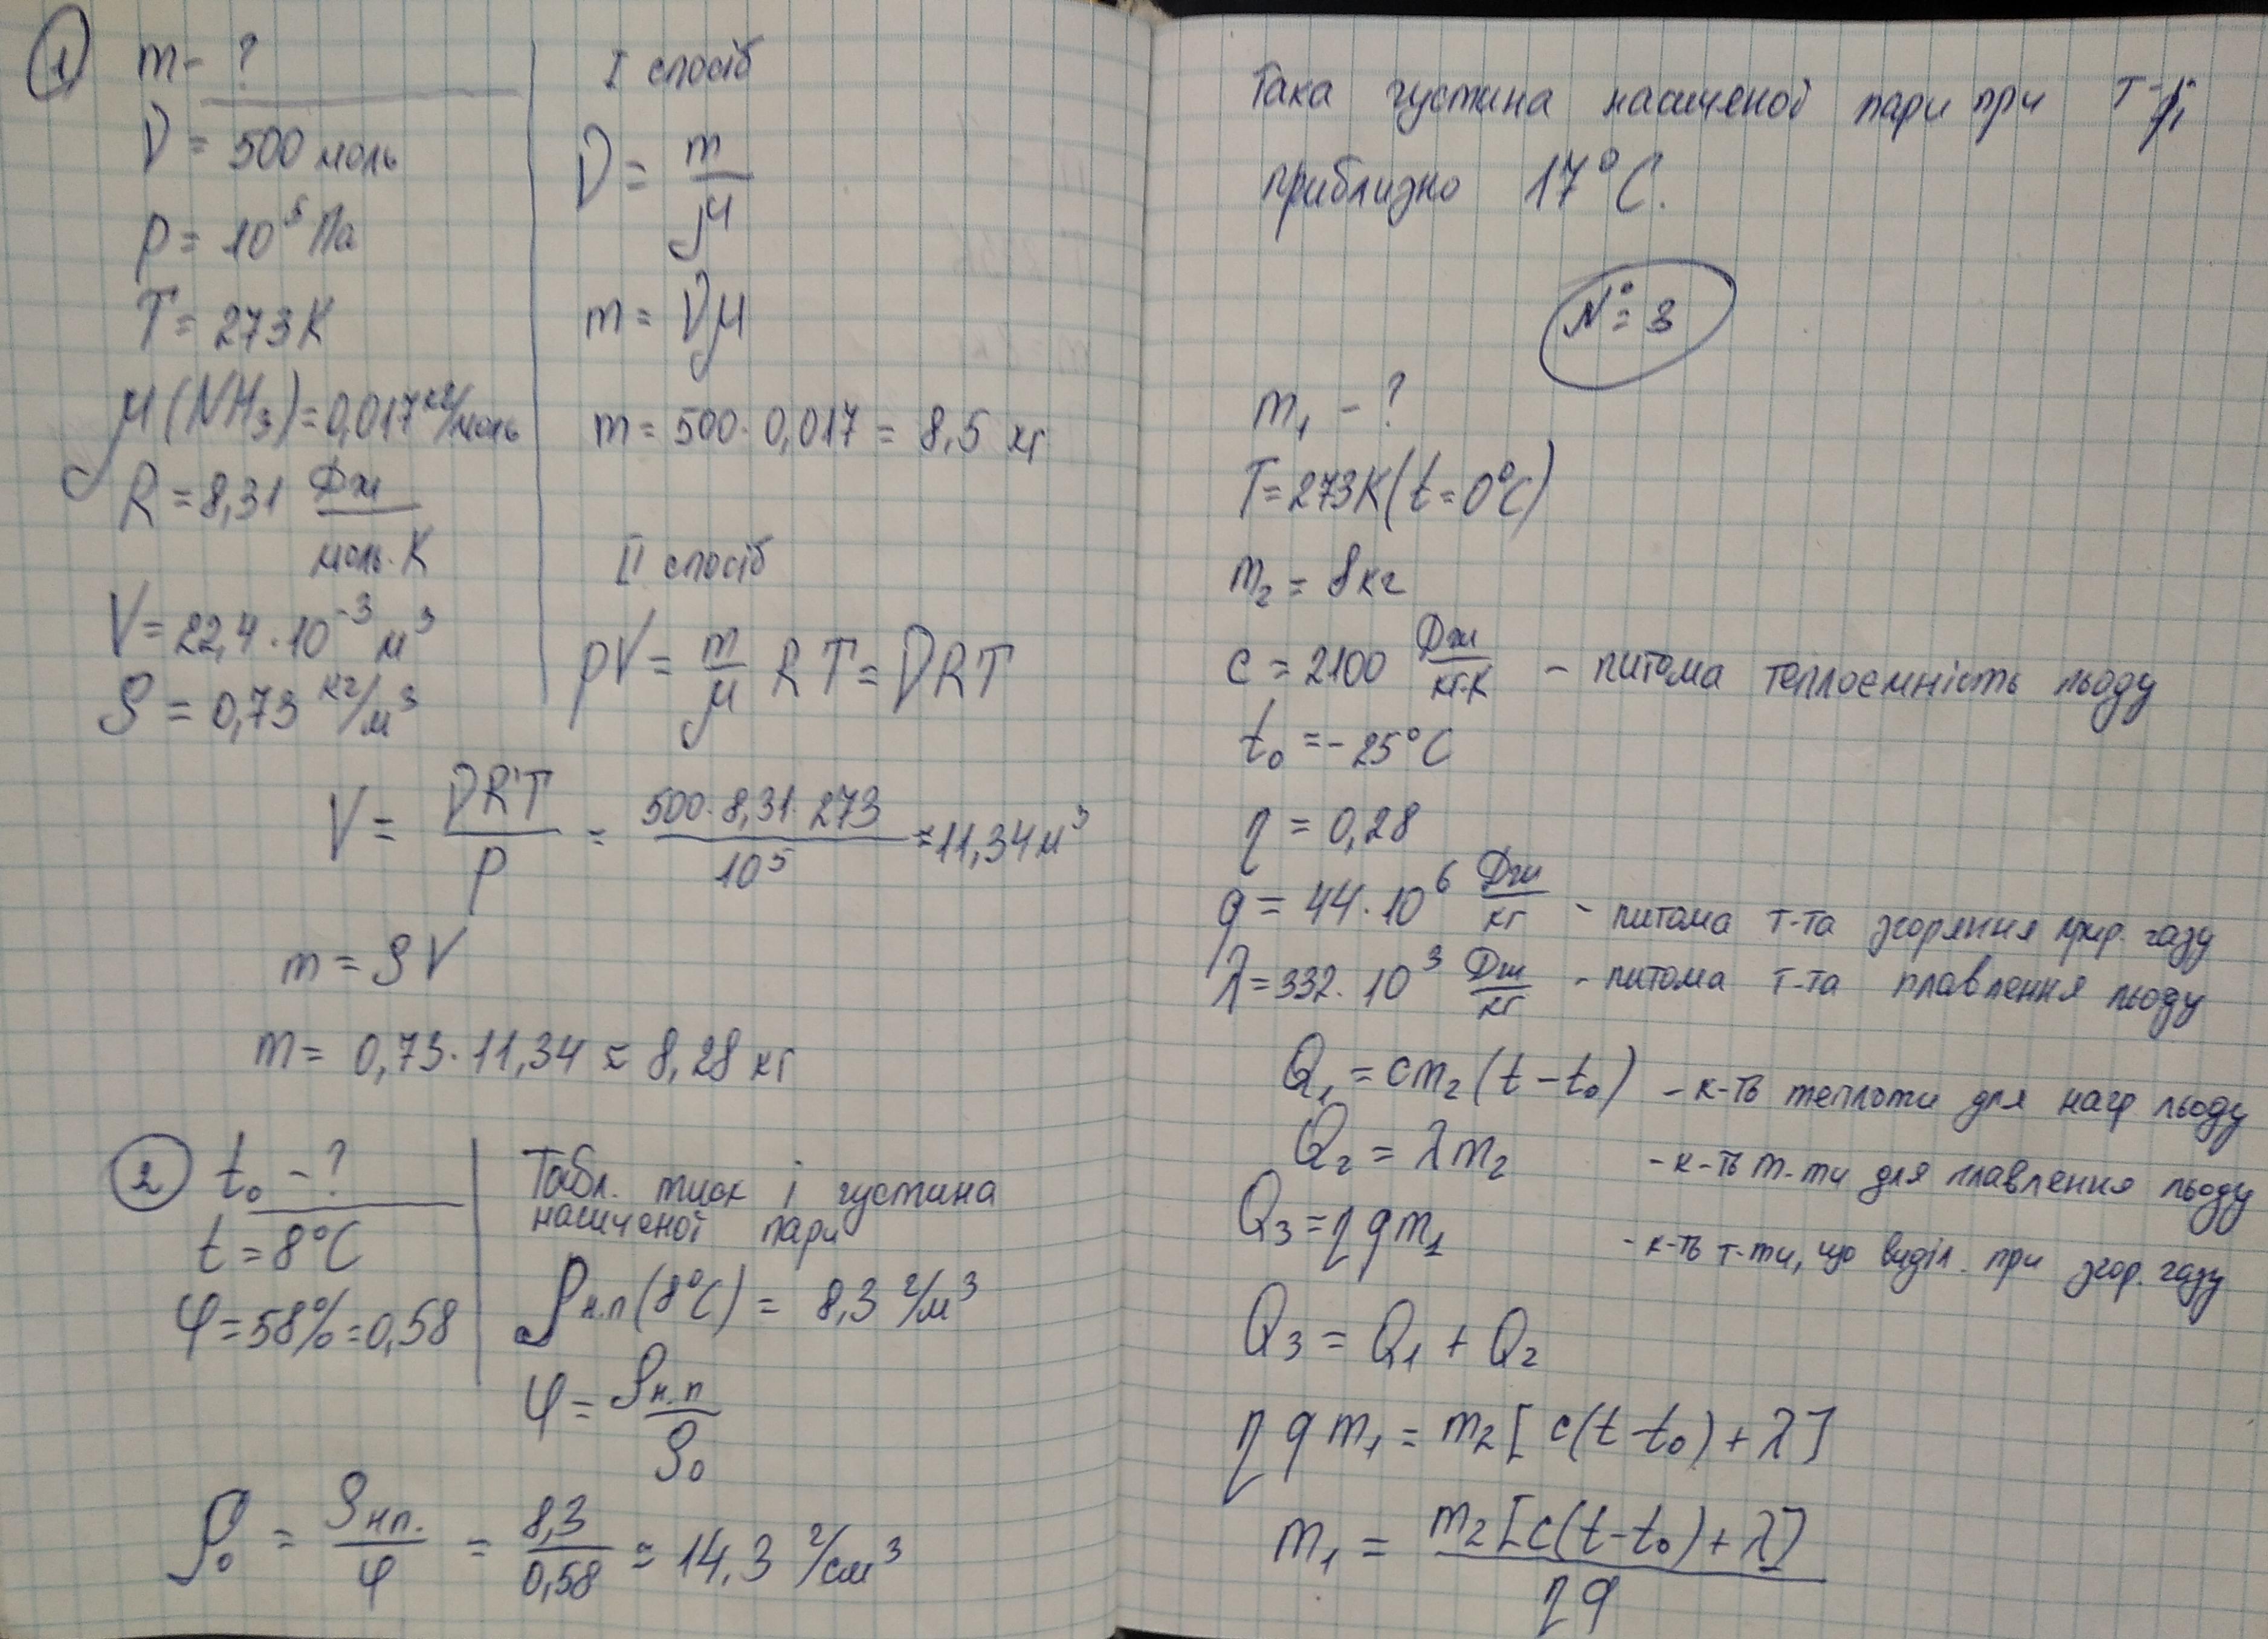 1
m - ?
ν = 500 моль
p = 10⁵ Па
T = 273 К
μ(NH₃) = 0,017 кг/моль
R = 8,31 Дж/моль·К
V = 22,4·10⁻³ м³
ρ = 0,73 кг/м³
I спосіб
ν = m/μ
m = νμ
m = 500·0,017 = 8,5 кг
II спосіб
pV = m/μ RT = νRT
V = νRT/p = 500·8,31·273/10⁵ = 11,34 м³
m = ρV
m = 0,73·11,34 ≈ 8,28 кг
2
t₀ - ?
t = 8°C
φ = 58% = 0,58
Табл. тиск і густина
насиченої пари
ρн.п (8°C) = 8,3 г/м³
φ = ρн.п/ρ₀
ρ₀ = ρнп./φ = 8,3/0,58 = 14,3 г/см³
Така густина насиченої пари при т-рі
приблизно 17°C.
№ 3
m₁ - ?
T = 273К (t = 0°C)
m₂ = 8 кг
c = 2100 Дж/кг·К - питома теплоємність льоду
t₀ = -25°C
η = 0,28
q = 44·10⁶ Дж/кг - питома т-та згоряння прир. газу
λ = 332·10³ Дж/кг - питома т-та плавлення льоду
Q₁ = cm₂(t - t₀) - к-ть теплоти для нагр льоду
Q₂ = λm₂ - к-ть т-ти для плавлення льоду
Q₃ = ηqm₁ - к-ть т-ти, що виділ. при згор. газу
Q₃ = Q₁ + Q₂
ηqm₁ = m₂[c(t - t₀) + λ]
m₁ = m₂[c(t - t₀) + λ]/ηq